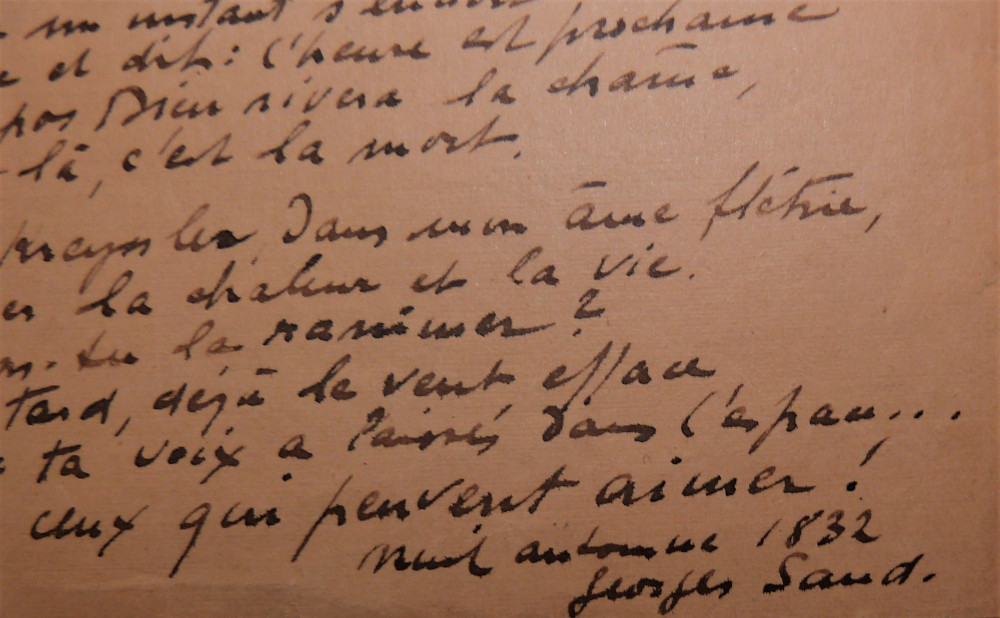 un instant s'endort
et dit : l'heure est prochaine
pas Dieu rivera la chaîne,
là, c'est la mort.
dans mon âme flétrie,
er la chaleur et la vie.
tu la ranimer ?
tard, déjà le vent efface
ta voix a laissés dans l'espace...
ceux qui peuvent aimer !
Nuit automne 1832
Georges Sand.